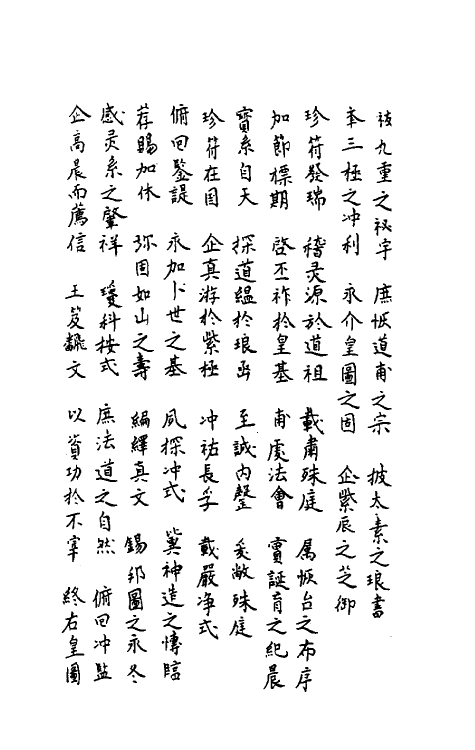 該九重之祕宇　庶恢道甫之宗　披太素之琅書
奉三極之冲利　永介皇圖之固　企紫辰之芝御
珍符發瑞　稽灵源於道祖　載肅殊庭　属恢台之布序
加節標期　啓丕祚於皇基　甫處法會　寶誕育之紀晨
寳系自天　探道緼於琅函　至誠内罄　爰敞殊庭
珍符在固　企真游於紫極　冲祐長孚　載嚴净式
俯回鍳諟　永加卜世之基　夙探冲式　冀神造之博臨
荐賜加休　弥固如山之壽　編繹真文　錫邦圖之永冬
感灵系之肇祥　瓊科按式　庶法道之自然　俯回冲監
企高晨而薦信　玉笈飜文　以資功於不宰　終右皇圖